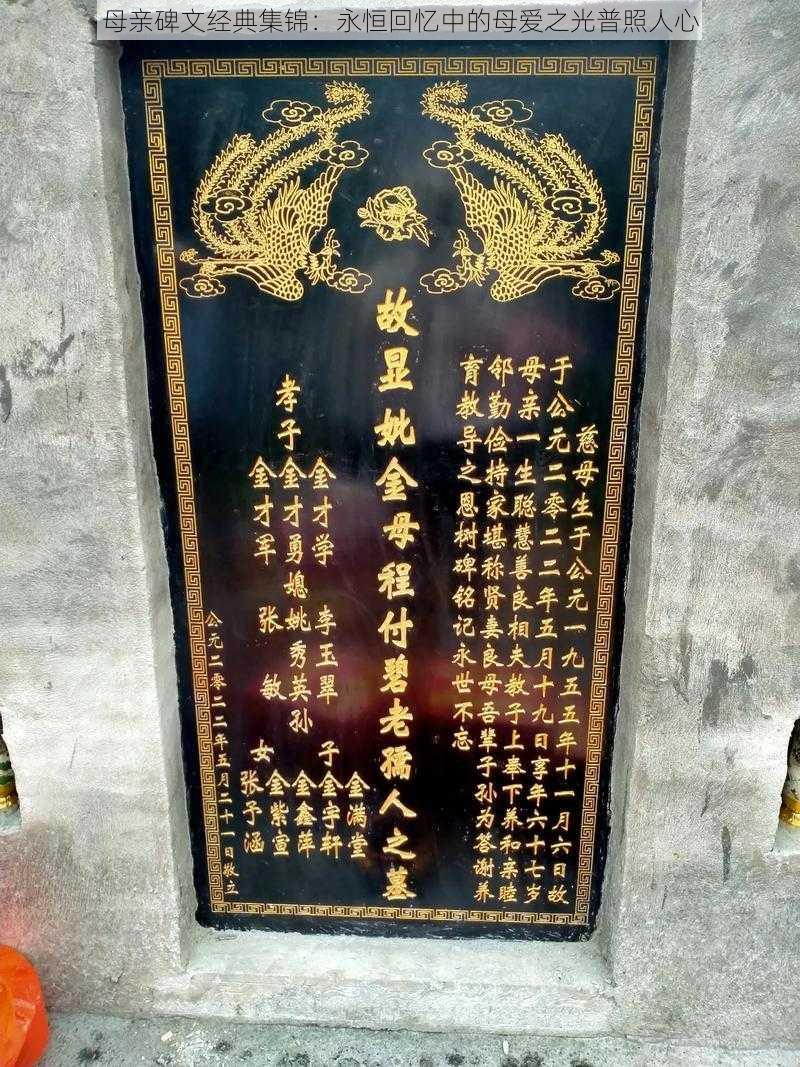 母亲碑文经典集锦：永恒回忆中的母爱之光普照人心
慈母生于公元一九五五年十一月六日故
于公元二零二二年五月十九日享年六十七岁
母亲一生聪慧善良相夫教子上奉下养和亲睦
邻勤俭持家堪称贤妻良母吾辈子孙为答谢养
育教导之恩树碑铭记永世不忘
故显妣金母程付碧老孺人之墓
金满堂
金才学 李玉翠 子 金宇轩
孝子 金才勇 媳 姚秀英 孙 金鑫萍
金才军 张敏 女 金紫宣
张子涵
公元二零二二年五月二十一日敬立